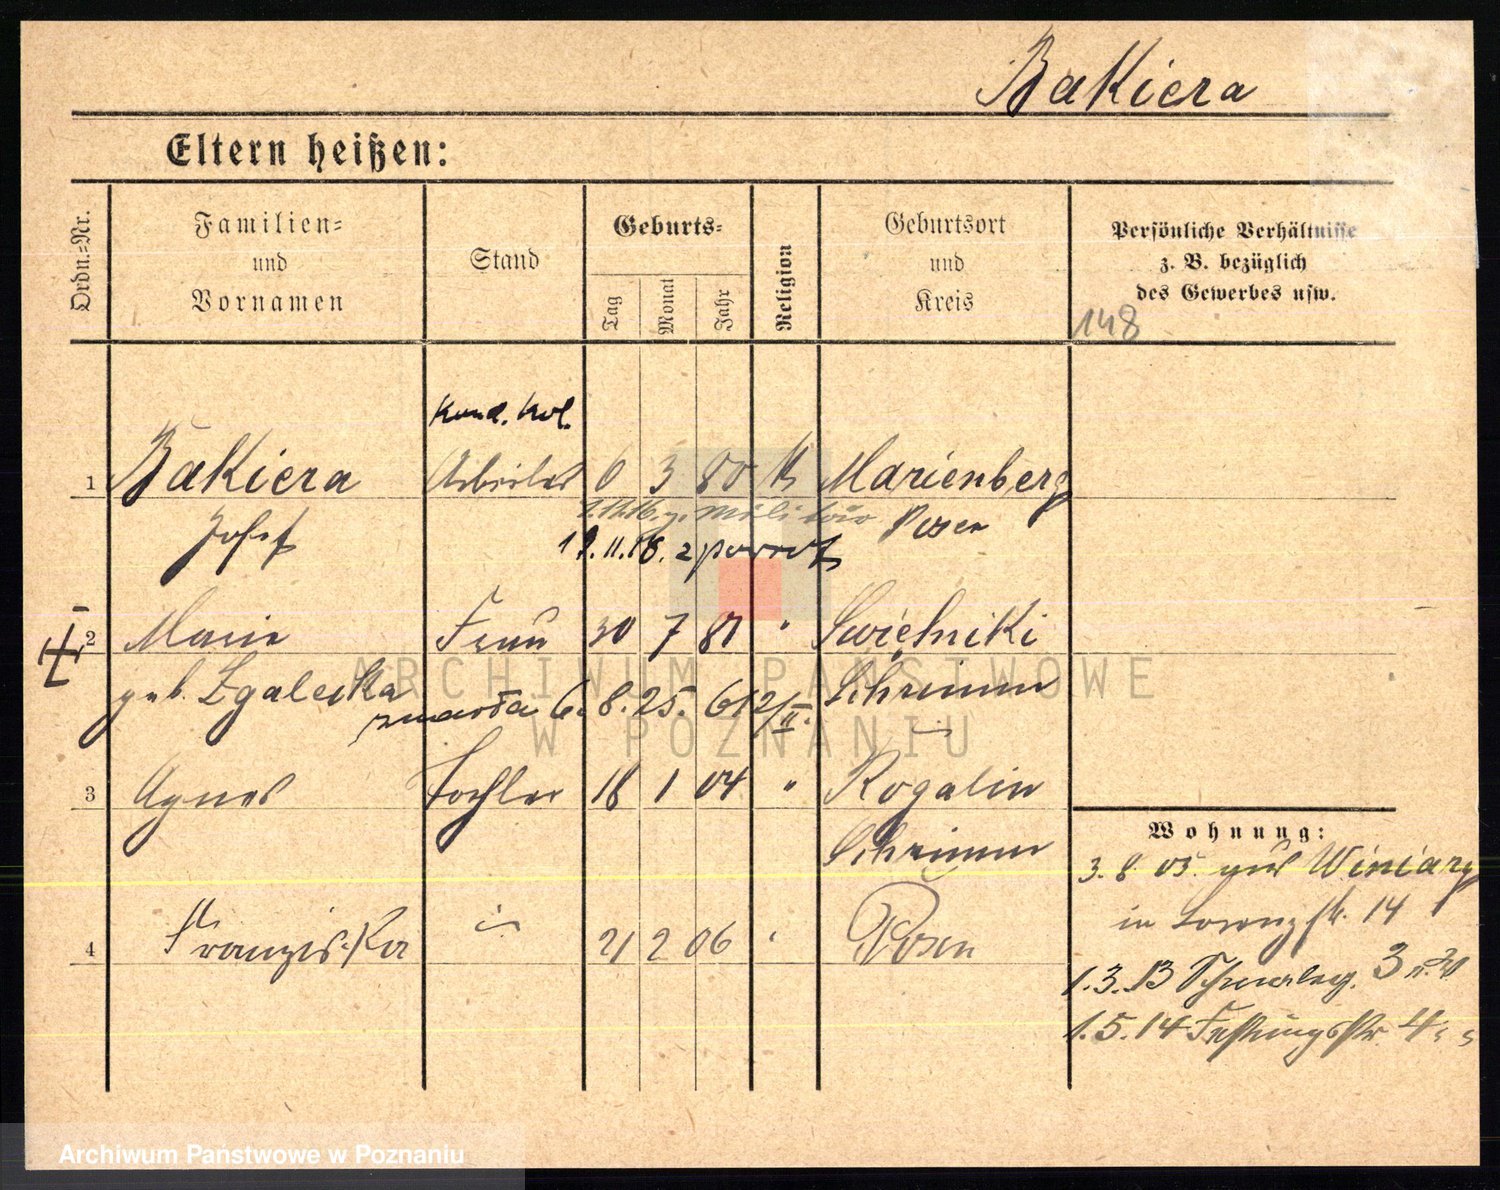 Bakiera
Eltern heißen:
Ordn.-Nr.
Familien-
und
Vornamen
Stand
Geburts-
Tag
Monat
Jahr
Religion
Geburtsort
und
Kreis
Persönliche Verhältnisse
z. B. bezüglich
des Gewerbes usw.
148
Kond. kol.
1 Bakiera Arbeiter 6 3 80 K Marienberg
1.11.16. z. Militär
Josef Posen
19.11.18. z powrot
2 Marie Frau 30 7 81 " Swiętniki
geb. Zgalecka Schrimm
zmarła 6. 8. 25. 612/II.
3 Agnes Tochter 18 1 04 " Rogalin
Schrimm
4 Franziska " 21 2 06 " Posen
Wohnung:
3. 8. 05. aus Winiary
in Lorenzstr. 14
1.3.13 3
1.5.14 Festungsstr. 4
ARCHIWUM PAŃSTWOWE
W POZNANIU
Archiwum Państwowe w Poznaniu